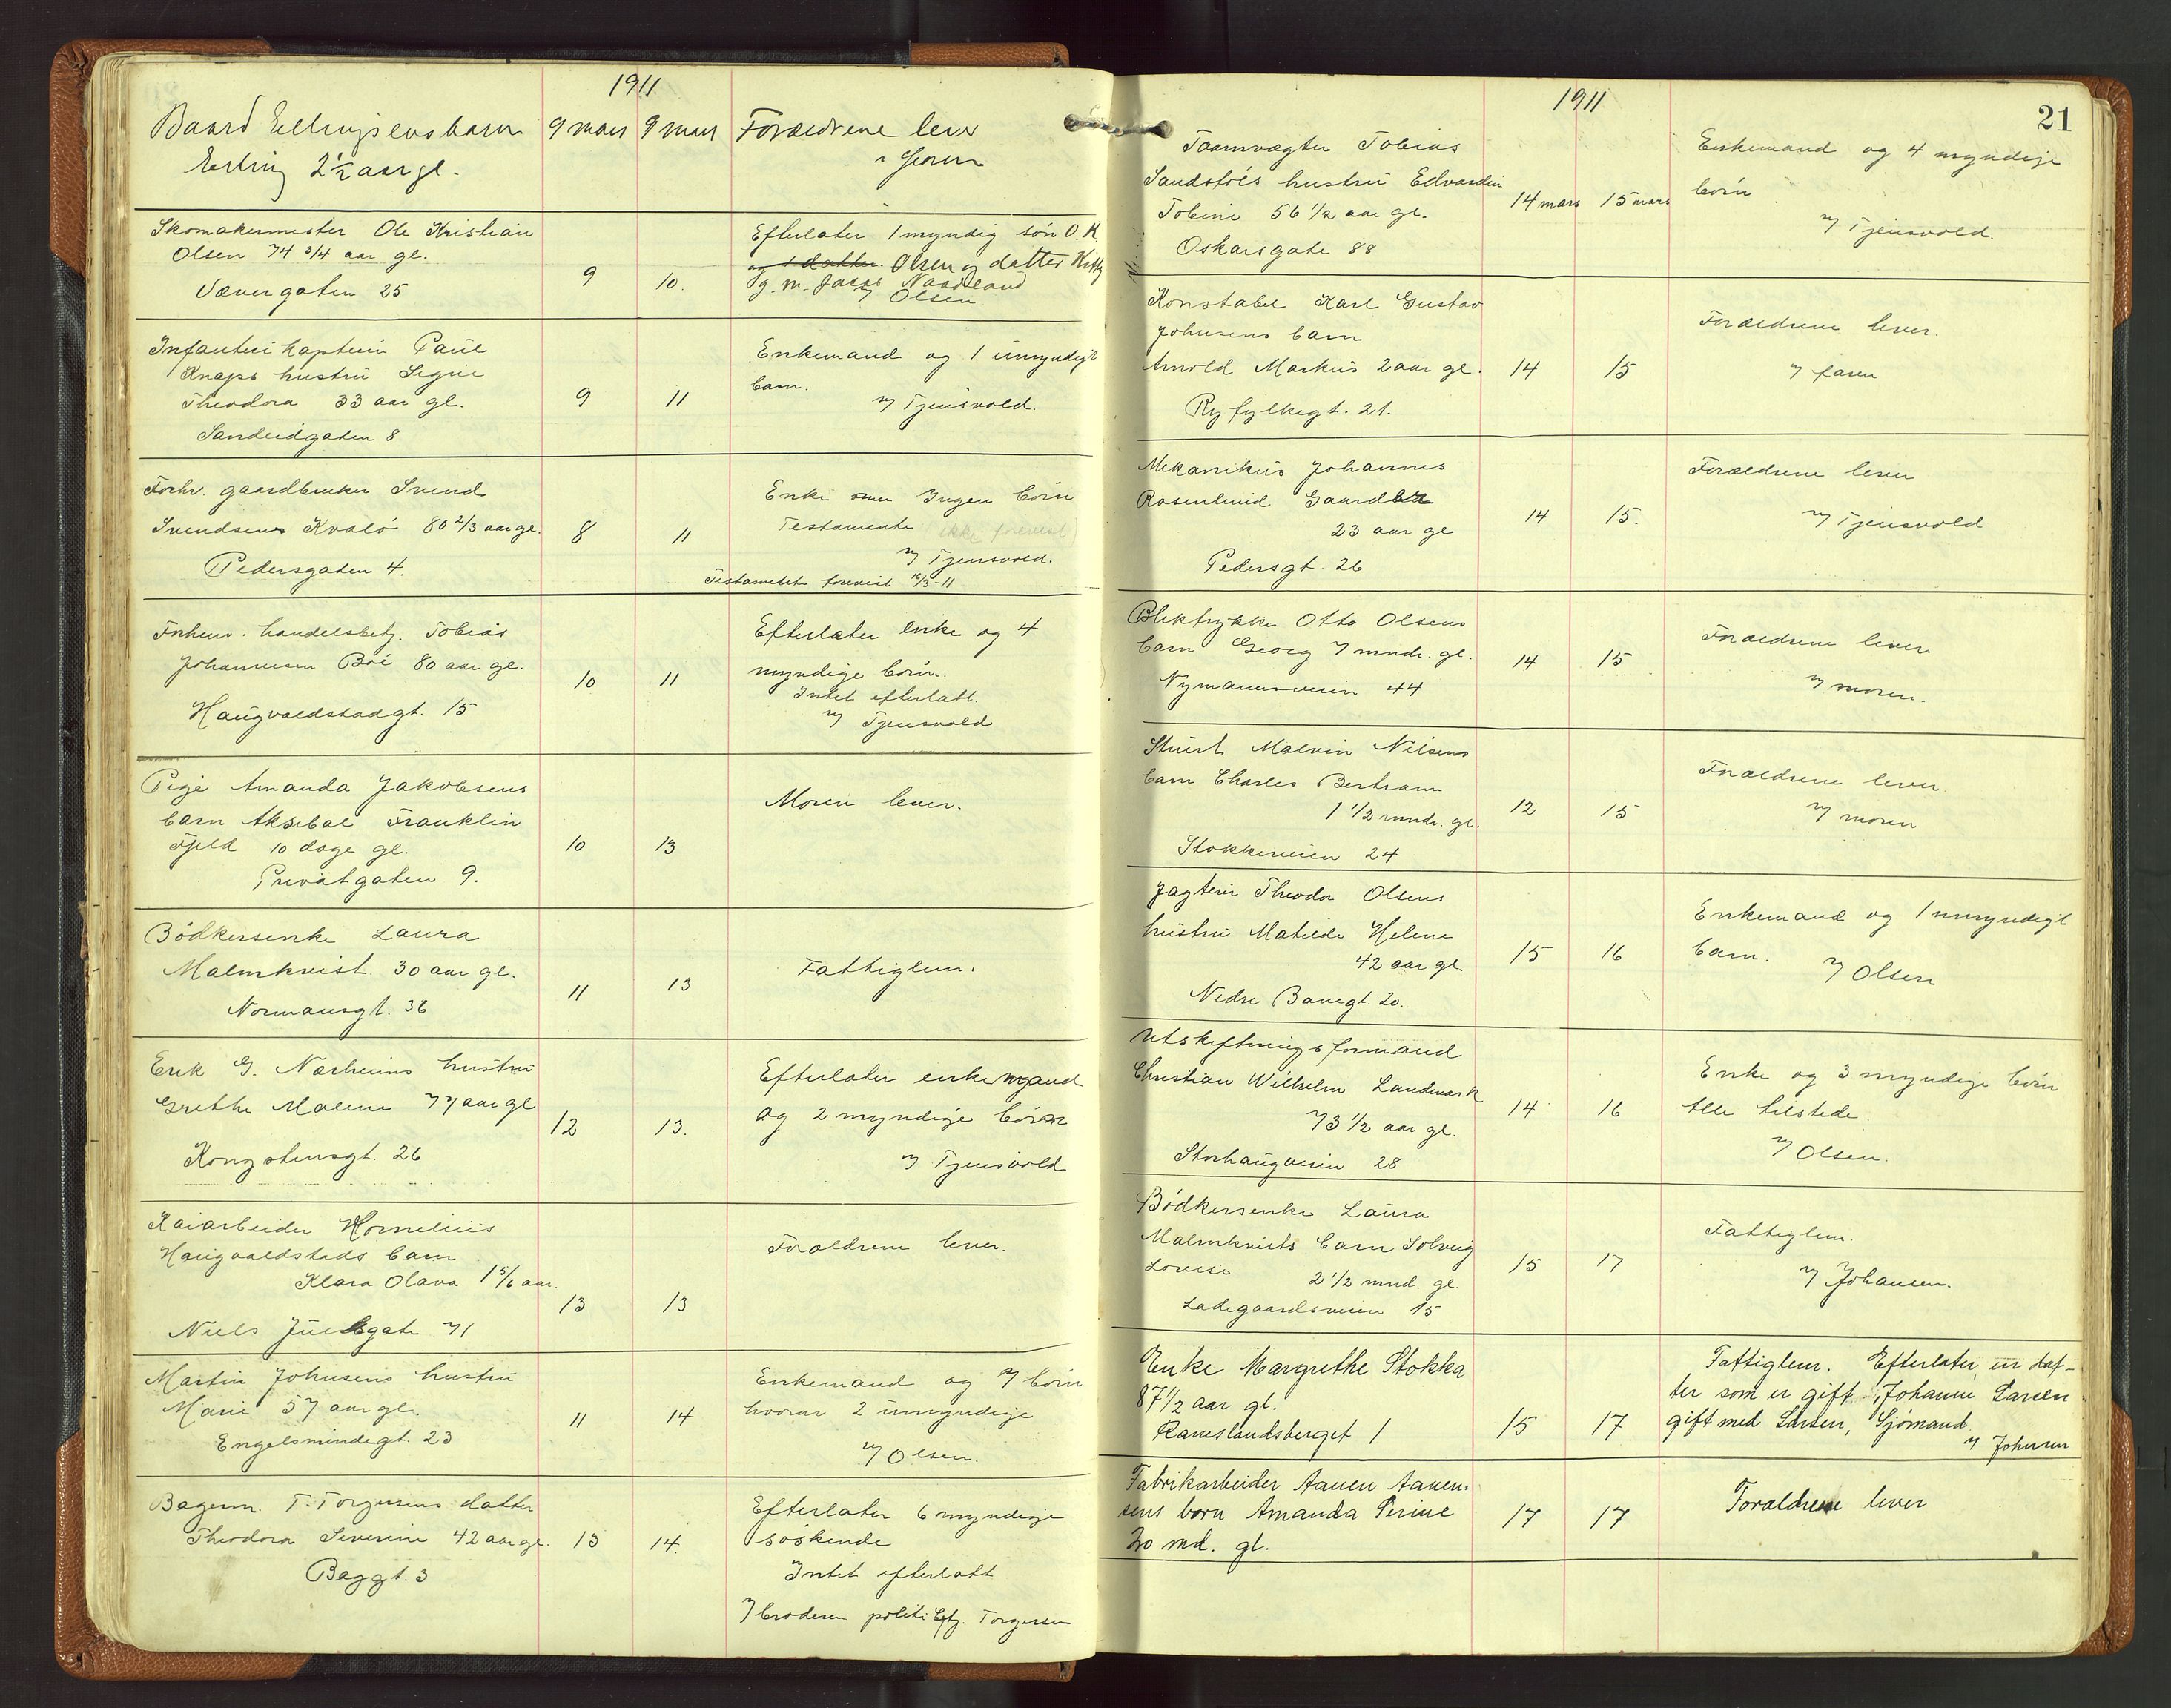 1911
Baard Ellingsens barn 9 mars 9 mars Forældrene lever
Erling 2 1/2 aar gl.
Skomakermester Ole Kristian
Olsen 74 3/4 aar gl.
Vævergaten 25
9 10.
Efterlater 1 myndig søn O. K.
og 1 datter. Olsen og datter Kitty
g. m. Jacob Naadland
v/ Olsen
Infanteri kaptein Paul
Knaps hustru Signe
Theodora 33 aar gl.
Sandeidgaten 8
9 11
Enkemand og 1 umyndigt
barn.
v/ Tjensvold.
Forhv. gaardbruker Svend
Svendsens Kvalø 80 2/3 aar gl.
Pedersgaten 4.
8 11
Enke Ingen børn
Testamente ikke forevist
v/ Tjensvold.
Testamente forevist 16/3-11
Forhenv. handelsbetj. Tobias
Johannesen Bøe 80 aar gl.
Haugvaldstadgt. 15
10 11
Efterlater enke og 4
myndige børn.
Intet efterlatt.
v/ Tjensvold
Pige Amanda Jakobsens
barn Aksebal Franklin
Fjeld 10 dage gl.
Privatgaten 9.
10 13
Moren lever.
Bødkersenke Laura
Malmkvist 30 aar gl.
Normansgt. 36
11 13
Fattiglem.
Erik G. Nærheims hustru
Grethe Malene 77 aar gl
Kongstensgt. 26
12 13.
Efterlater enkemand
og 2 myndige børn
v/ Tjensvold
Kaiarbeider Kornelius
Haugvaldstads barn
Klara Olava 1 5/6 aar.
Niels Juelsgate 71
13 13
Forældrene lever.
Martin Johnsens hustru
Marie 57 aar gl.
Engelsmindegt. 23
11 14
Enkemand og 7 børn
hvorav 2 umyndige
v/ Olsen.
Bagerm. T. Torgersens datter
Theodora Severine 42 aar gl.
Baggt. 3
13 14.
Efterlater 6 myndige
søskende
Intet efterlatt
v/ broderen politibetj. Torgersen
1911
21
Taarnvægter Tobias
Sandstøls hustru Edvardin
Tobine 56 1/2 aar gl.
Oskarsgate 88
14 mars 15 mars
Enkemand og 4 myndige
børn
v/ Tjensvold.
Konstabel Karl Gustav
Johnsens barn
Arnold Markus 2 aar gl.
Ryfylkegt. 21.
14 15
Forældrene lever.
v/ faren
Mekanikus Johannes
Rosenlund Gaard
23 aar gl
Pedersgt. 26
14 15.
Forældrene lever
v/ Tjensvold
Bliktrykker Otto Olsens
barn Georg 7 mndr. gl.
Nymansveien 44
14 15
Forældrene lever
v/ moren.
Stuert Malvin Nilsens
barn Charles Bertram
1 1/2 mndr. gl.
Stokkeveien 24
12 15
Forældrene lever.
v/ moren
Jagteier Theodor Olsens
hustru Matilde Helene
42 aar gl.
Nedre Banegt. 20.
15 16
Enkemand og 1 umyndigt
barn.
v/ Olsen
Utskiftningsformand
Christian Wilhelm Landmark
73 1/2 aar gl.
Storhaugveien 28
14 16
Enke og 3 myndige børn
Alle tilstede.
v/ Olsen.
Bødkersenke Laura
Malmkvists barn Solveig
Lovise 2 1/2 mnd. gl.
Ladegaardsveien 15
15 17
Fattiglem.
v/ Johansen.
Enke Margrethe Stokka
87 1/2 aar gl.
Rameslandsberget 1
15 17
Fattiglem. Efterlater en dat-
ter som er gift, Johanne Larsen
gift med Larsen, Sjømand
v/ Johnsen
Fabrikarbeider Aanen Aanen-
sens born Amanda Serine
20 md. gl.
17 17
Foraldrene lever